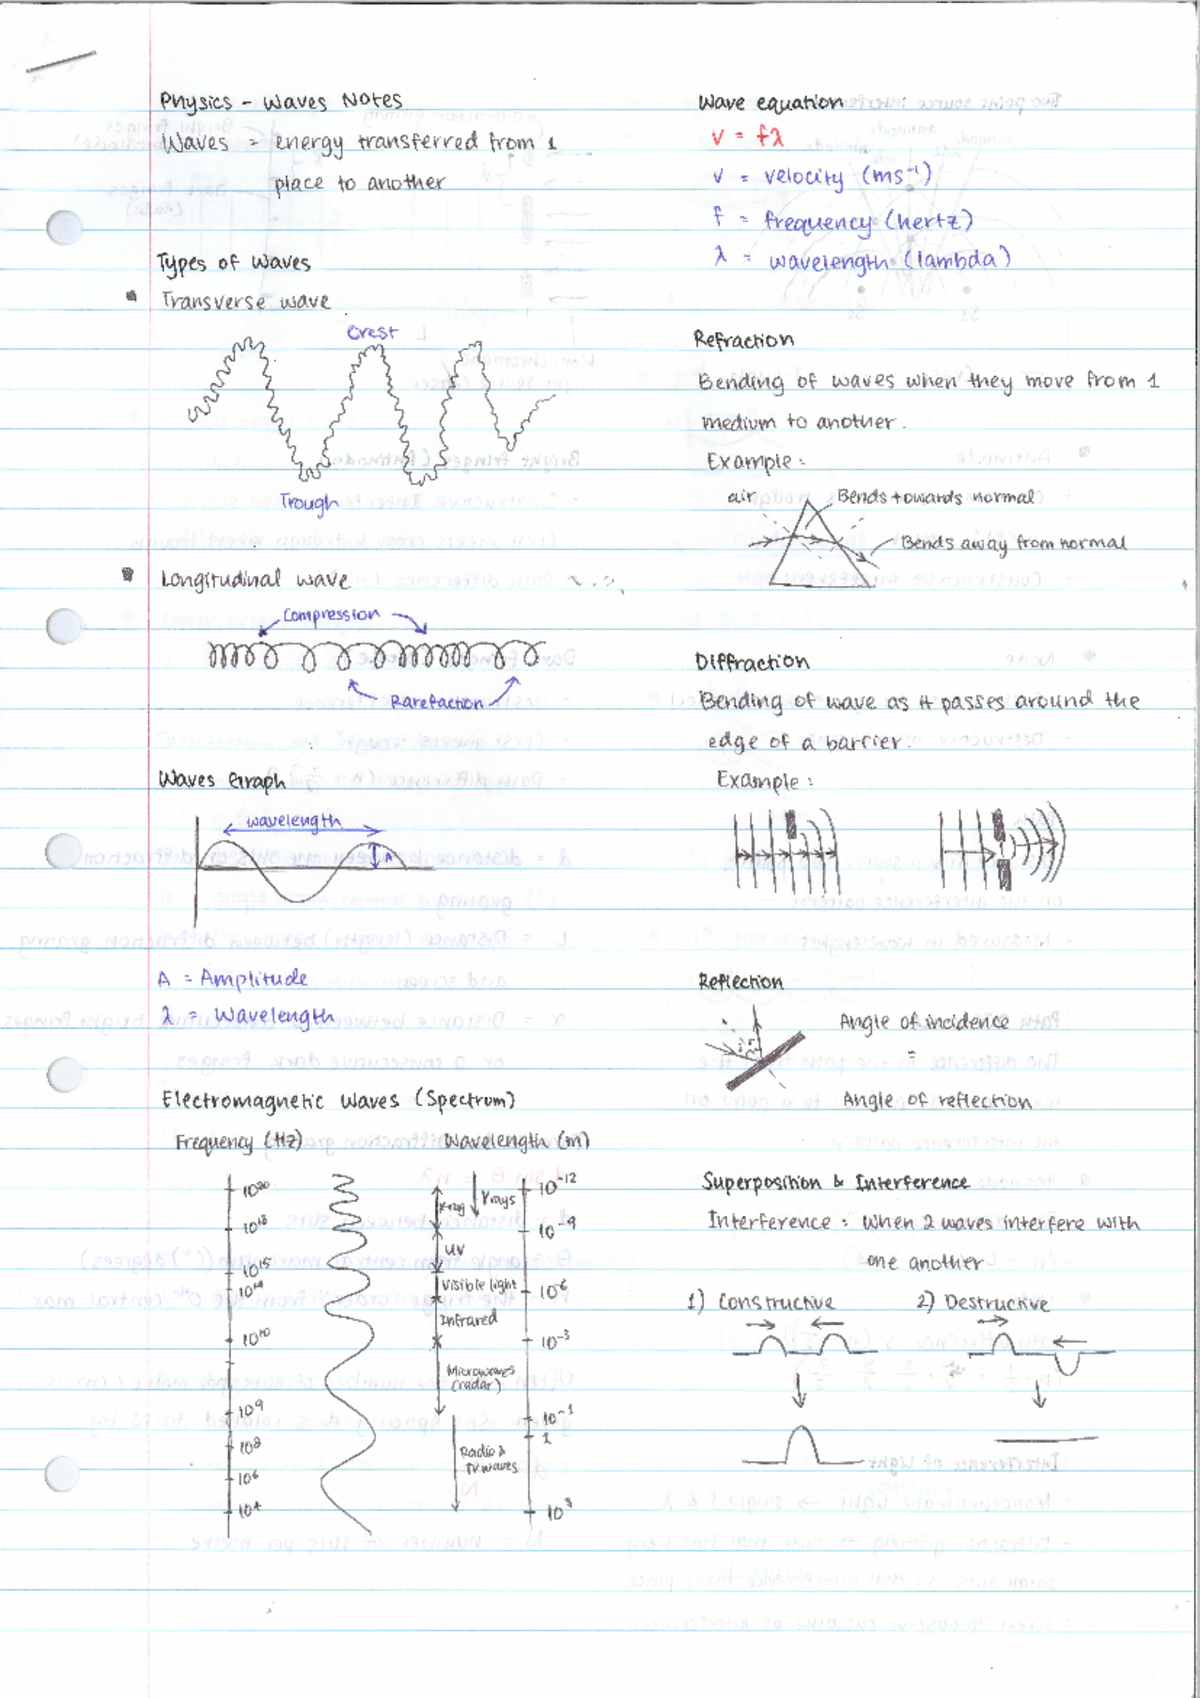 Physics - Waves Notes
Waves = energy transferred from 1
place to another
Types of Waves
Transverse wave
Crest
Trough
Longitudinal wave
Compression
Rarefaction
Waves Graph
wavelength
A
A = Amplitude
λ = Wavelength
Electromagnetic Waves (Spectrum)
Frequency (Hz)
Wavelength (m)
10²⁰
10¹⁸
10¹⁵
10¹⁴
10¹⁰
10⁹
10⁸
10⁶
10⁴
X-ray
γ rays
UV
Visible light
Infrared
Microwaves
(radar)
Radio &
TV waves
10⁻¹²
10⁻⁹
10⁻⁶
10⁻³
10⁻¹
1
10³
Wave equation
v = fλ
v = velocity (ms⁻¹)
f = frequency (hertz)
λ = wavelength (lambda)
Refraction
Bending of waves when they move from 1
medium to another.
Example:
air
Bends towards normal
Bends away from normal
Diffraction
Bending of wave as it passes around the
edge of a barrier.
Example:
Reflection
Angle of incidence
=
Angle of reflection
Superposition & Interference
Interference: When 2 waves interfere with
one another
1) Constructive
2) Destructive